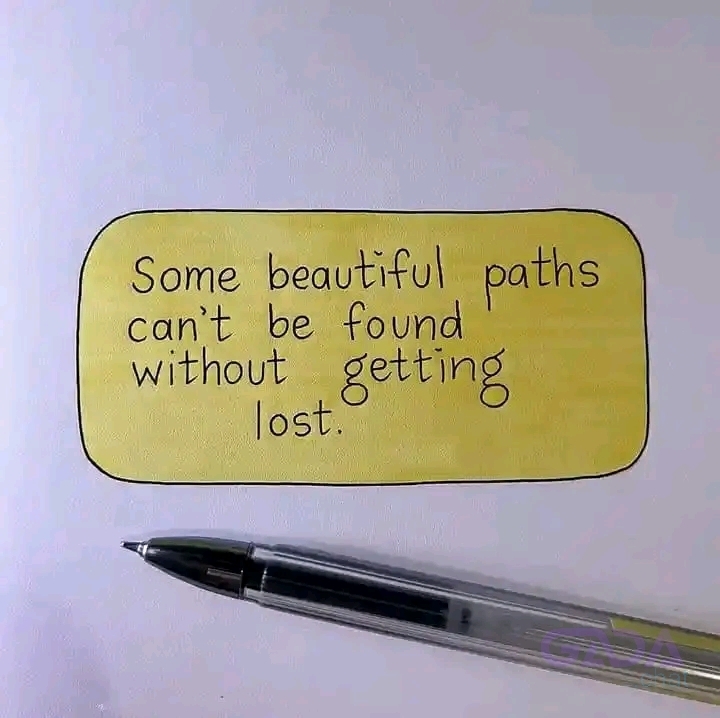 Some beautiful paths
can't be found
without getting
lost.